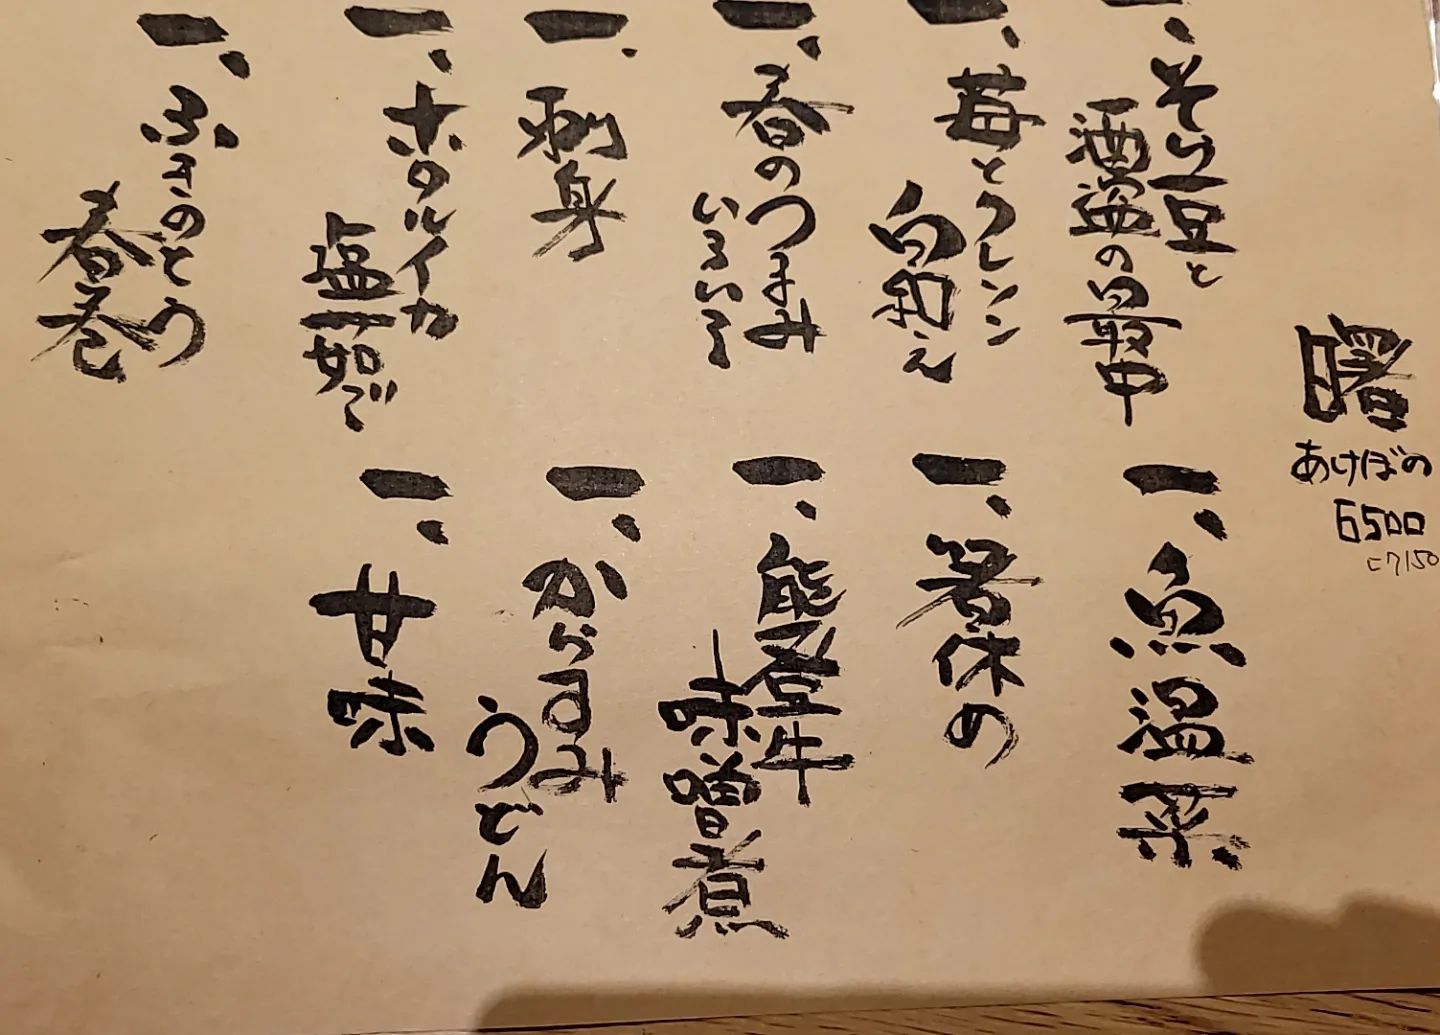 曙
あけぼの
6500
一、そら豆と
酒盗の最中
一、苺とクレソン
白和え
一、春のつまみ
いろいろ
一、刺身
一、ホタルイカ
塩茹で
一、ふきのとう
春巻
一、魚温菜
一、箸休め
一、能登牛
味噌煮
一、からすみ
うどん
一、甘味